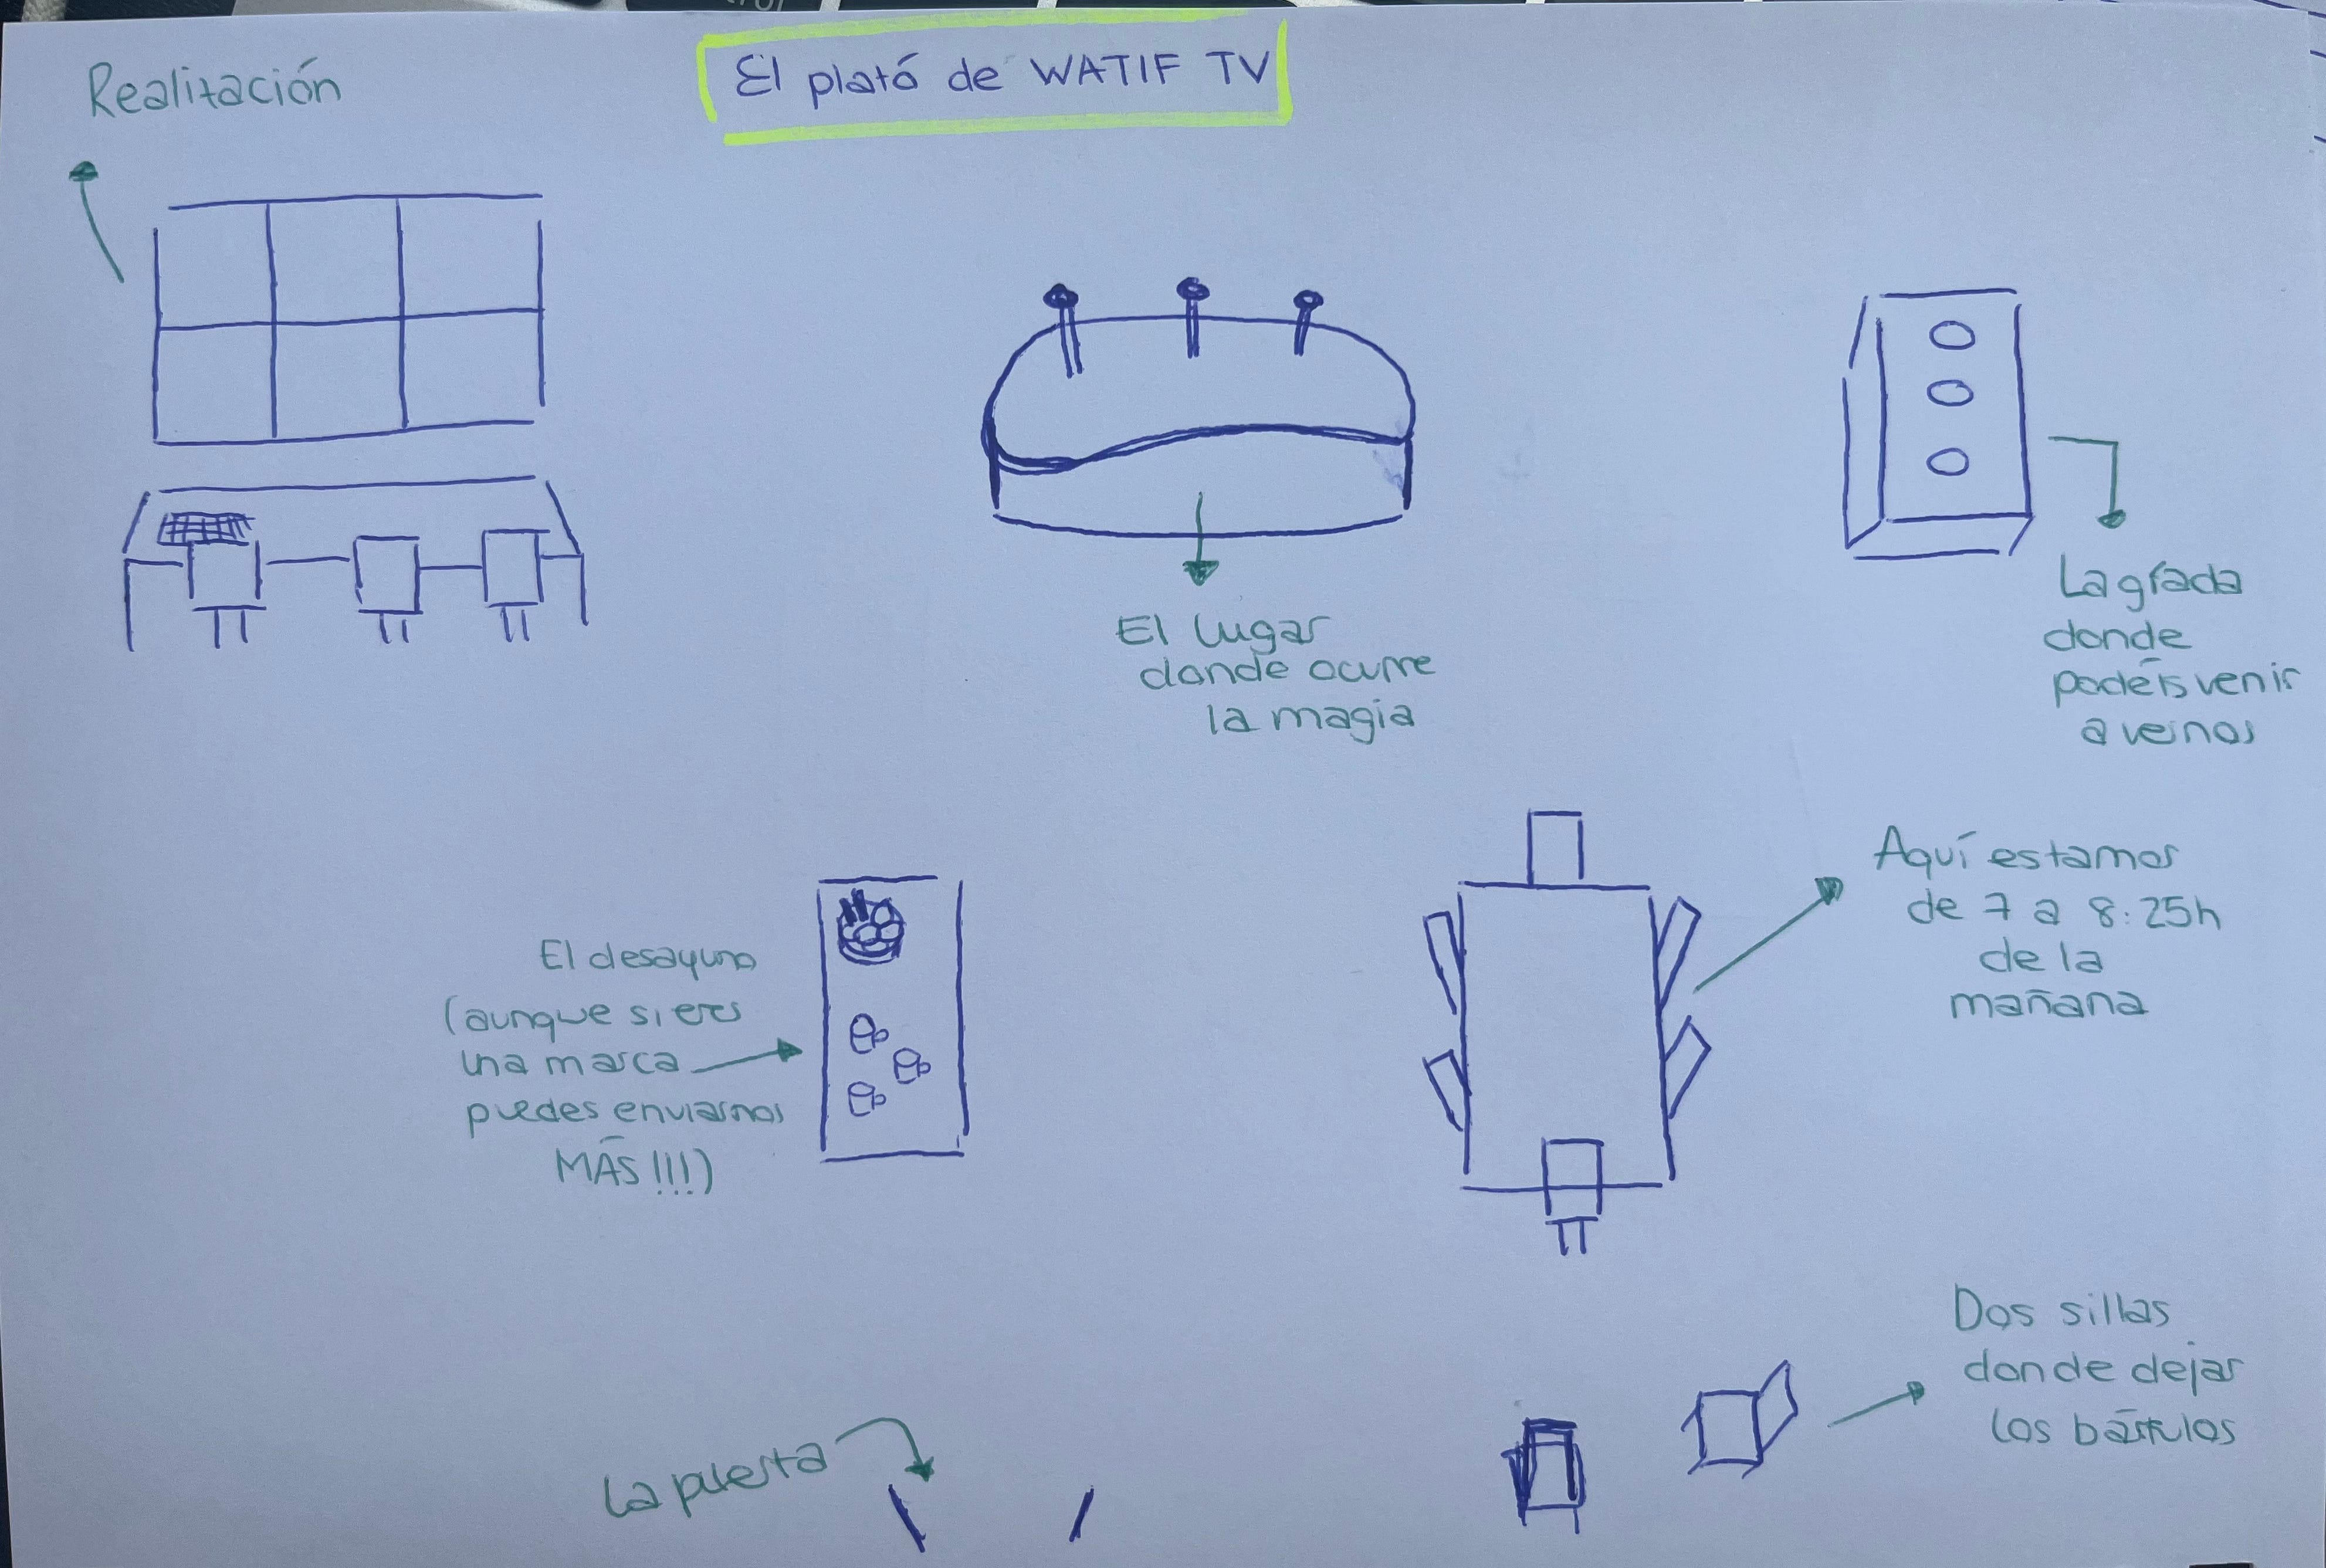 El plató de WATIF TV
Realización
El lugar
donde ocurre
la magia
La grada
donde
podéis venir
a vernos
Aquí estamos
de 7 a 8:25h
de la
mañana
El desayuno
(aunque si eres
una marca
puedes enviarnos
MÁS!!!)
Dos sillas
donde dejar
los bártulos
La puerta